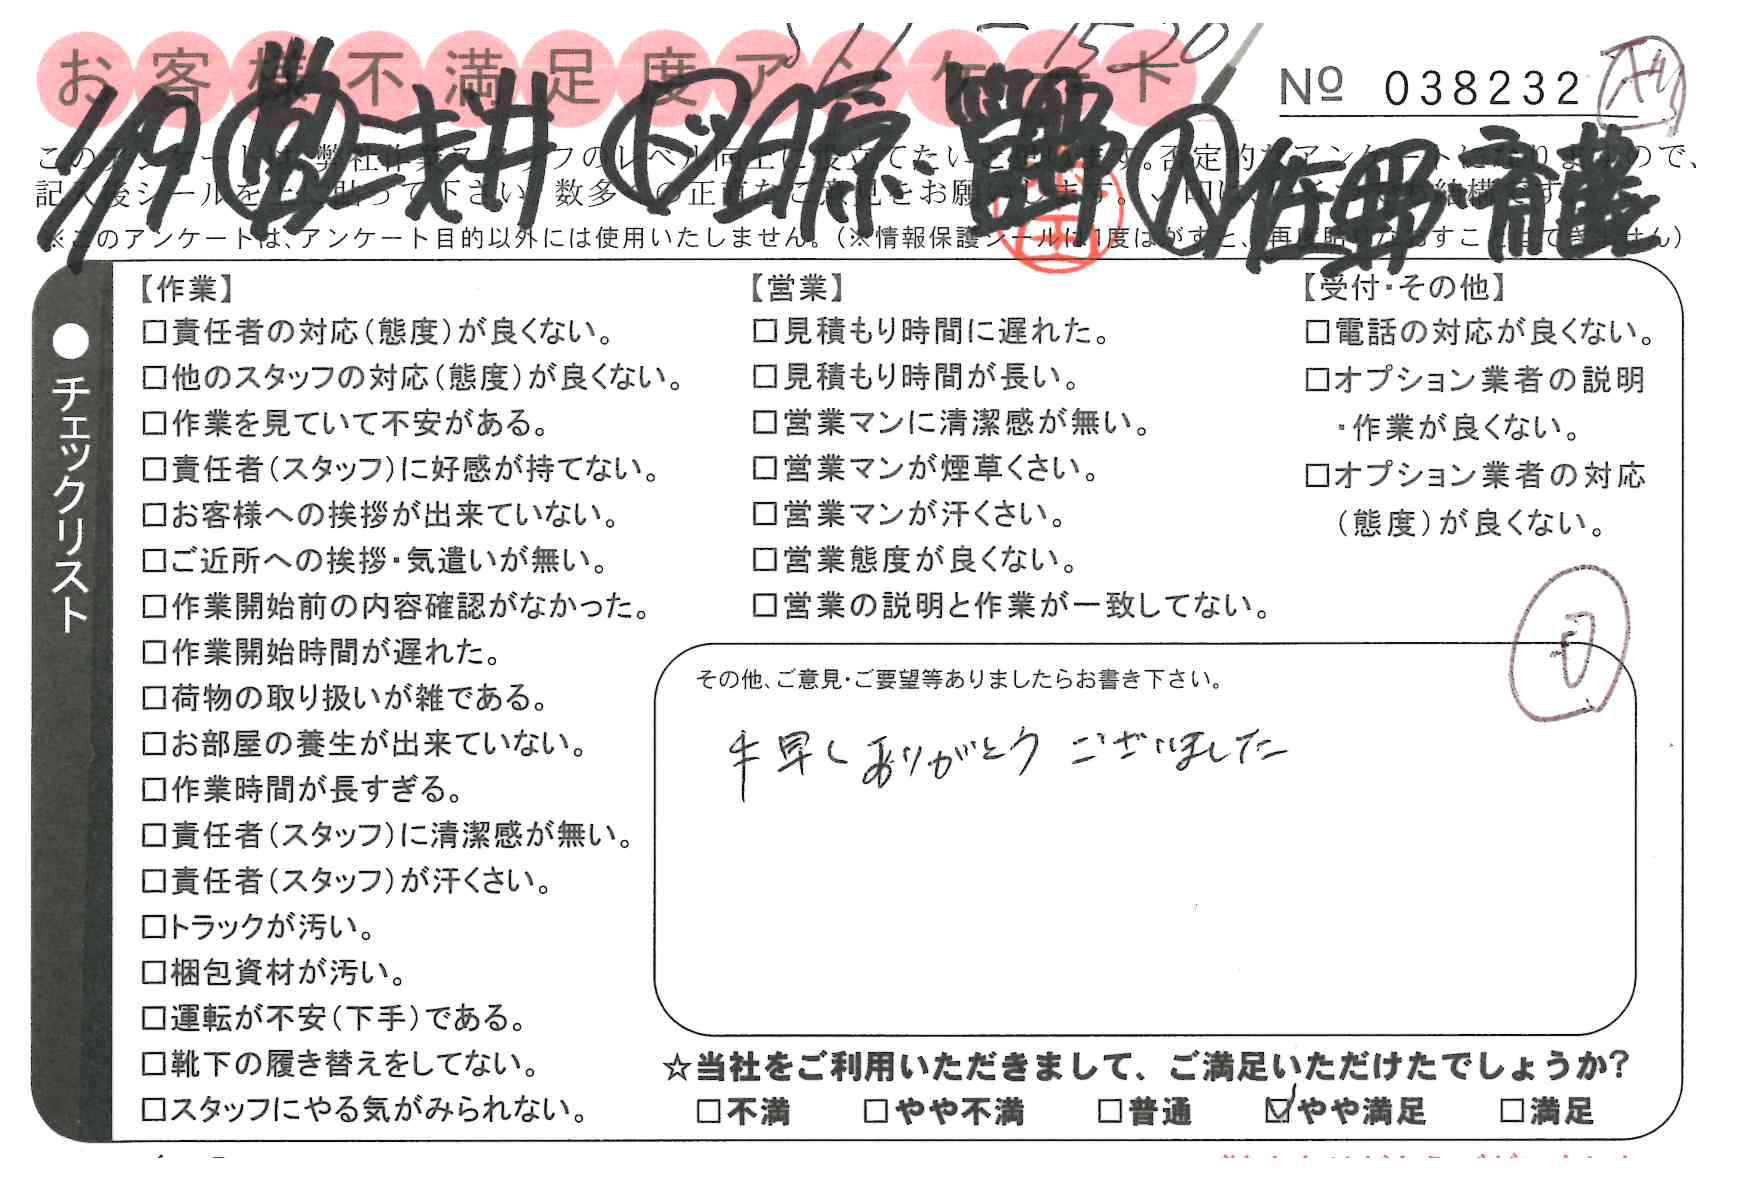 お客様不満足度アンケート
№ 038232
1/9
佐野 斉藤
このアンケートは、弊社作業スタッフのレベル向上に役立てたいと
記入後シールを上に貼って下さい。数多くの正直なご意見をお願いします。
※このアンケートは、アンケート目的以外には使用いたしません。（※情報保護シールは1度はがすと、再度貼りなおすことはできません）
●チェックリスト
【作業】
□責任者の対応（態度）が良くない。
□他のスタッフの対応（態度）が良くない。
□作業を見ていて不安がある。
□責任者（スタッフ）に好感が持てない。
□お客様への挨拶が出来ていない。
□ご近所への挨拶・気遣いが無い。
□作業開始前の内容確認がなかった。
□作業開始時間が遅れた。
□荷物の取り扱いが雑である。
□お部屋の養生が出来ていない。
□作業時間が長すぎる。
□責任者（スタッフ）に清潔感が無い。
□責任者（スタッフ）が汗くさい。
□トラックが汚い。
□梱包資材が汚い。
□運転が不安（下手）である。
□靴下の履き替えをしてない。
□スタッフにやる気がみられない。
【営業】
□見積もり時間に遅れた。
□見積もり時間が長い。
□営業マンに清潔感が無い。
□営業マンが煙草くさい。
□営業マンが汗くさい。
□営業態度が良くない。
□営業の説明と作業が一致してない。
【受付・その他】
□電話の対応が良くない。
□オプション業者の説明
・作業が良くない。
□オプション業者の対応
（態度）が良くない。
その他、ご意見・ご要望等ありましたらお書き下さい。
手早くありがとうございました
☆当社をご利用いただきまして、ご満足いただけたでしょうか?
□不満 □やや不満 □普通 ☑やや満足 □満足